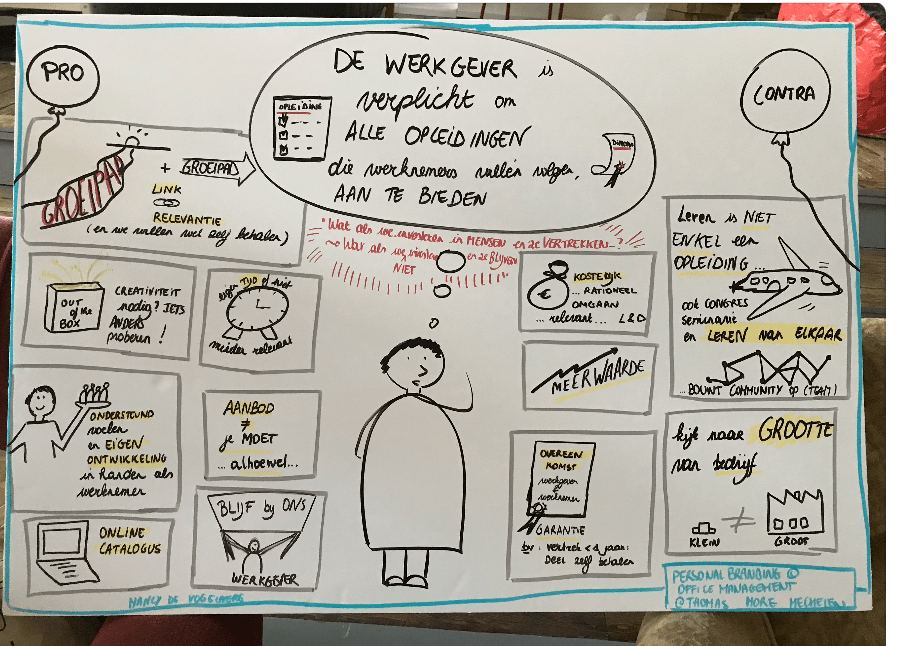 PRO
DE WERKGEVER is
verplicht om
ALLE OPLEIDINGEN
die werknemers willen volgen,
AAN TE BIEDEN
OPLEIDING
DIPLOMA
CONTRA
GROEIPAD
+ GROEIPAD
LINK
RELEVANTIE
(en we willen wel zelf betalen)
"Wat als we investeren in MENSEN en ze VERTREKKEN...?
Wat als we investeren
NIET
en ze BLIJVEN
OUT
of the
BOX
CREATIVITEIT
nodig? IETS
ANDERS
proberen!
eigen TIJD of niet
minder relevant
ONDERSTEUND
voelen
en EIGEN
ONTWIKKELING
in handen als
werknemer
AANBOD
≠
je MOET
... alhoewel...
ONLINE
CATALOGUS
BLIJF bij ONS
WERKGEVER
€
KOSTELIJK
... RATIONEEL
OMGAAN
... relevant... L&D
MEERWAARDE
OVEREEN
KOMST
werkgever
+
werknemer
GARANTIE
bv: vertrek < d jaar:
DEEL zelf betalen
Leren is NIET
ENKEL een
OPLEIDING...
ook CONGRES
seminarie
en LEREN van ELKAAR
...BOUWT COMMUNITY op (TEAM)
kijk naar GROOTTE
van bedrijf
KLEIN ≠ GROOT
PERSONAL BRANDING ©
OFFICE MANAGEMENT
@THOMAS MORE MECHELEN
NANCY DE VOGELAERE